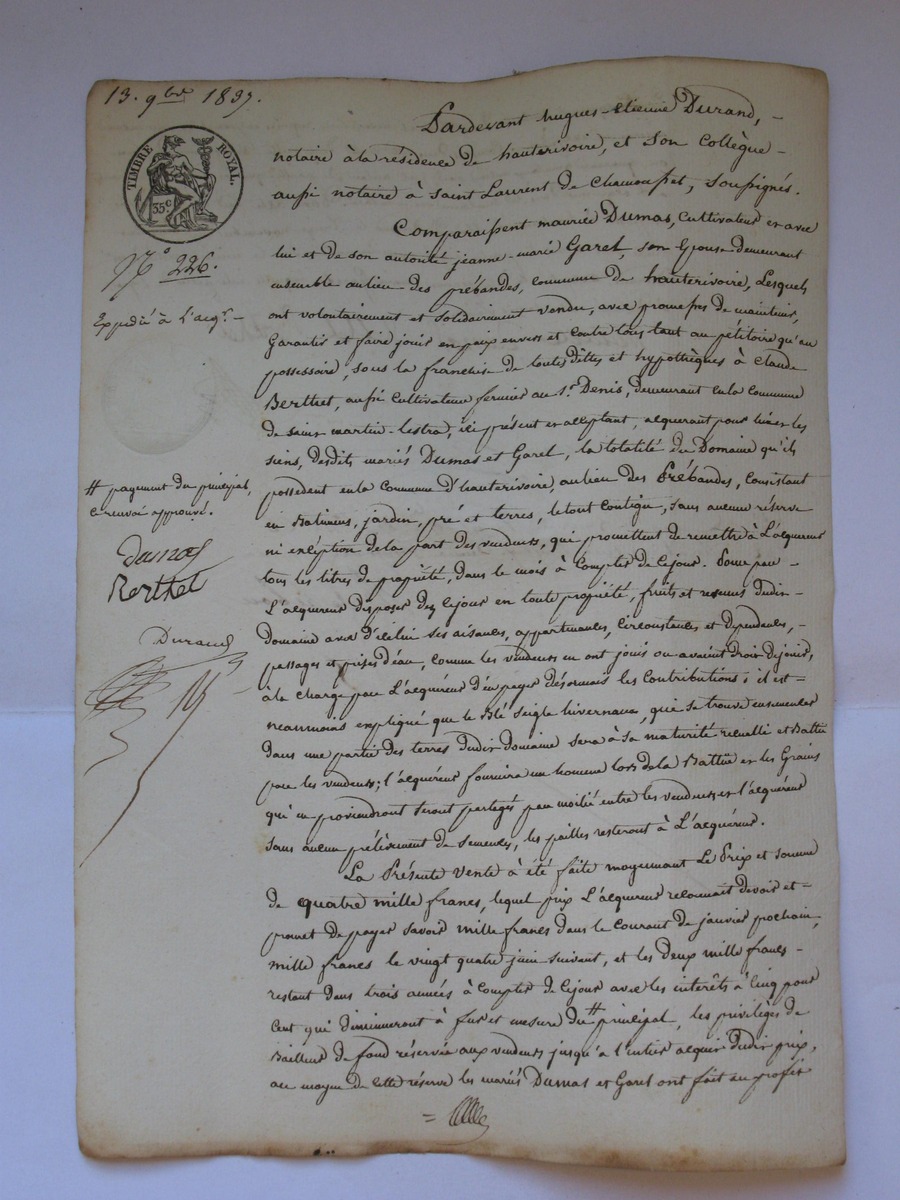 13. 9bre 1837.
TIMBRE ROYAL.
35c
No 226.
Expédié à l'acqr. -
# payement du principal,
ce renvoi approuvé.
Dumas
Berthet
Durand
Pardevant hugues-Etienne Durand, -
notaire à la résidence de hauterivoire, et son Collègue -
aussi notaire à Saint Laurent de Chamousset, soussignés.
Comparaissent maurice Dumas, Cultivateur et avec
lui et de son autorité jeanne-marie Garel, son Epouse demeurant
ensemble au lieu des prébandes, commune de hauterivoire, Lesquels
ont volontairement et solidairement vendu, avec promesses de maintenir,
Garantir et faire jouir en paix envers et contre tous tant au pétitoire qu'au
possessoire, sous la franchise de toutes dettes et hypothèques à Claude
Berthet, aussi Cultivateur fermier au St. Denis, demeurant en la commune
de saint martin-lestra, ici présent et acceptant, acquerant pour lui et les
siens, desdits mariés Dumas et Garel, la totalité du Domaine qu'ils
possedent en la Commune d'hauterivoire, au lieu des Prébandes, Consistant
en Batimens, jardin, pré et terres, le tout contigu, sans aucune réserve
ni exception de la part des vendeurs, qui promettent de remettre à L'acquereur
tous les titres de propriété, dans le mois à Compter de Cejour. Pour par -
L'acquereur disposer dez cejour en toute propriété, fruits et revenus dudit -
domaine avec d'icelui ses aisances, appartenances, Circonstances et dépendances, -
passages et prises d'eau, comme les vendeurs en ont joui ou avaient droit de jouir,
à la charge par L'acquéreur d'en payer désormais les Contributions; il est -
neanmoins expliqué que le Blé Seigle hivernaux, qui se trouve ensemencé
dans une partie des terres dudit domaine sera à sa maturité recueilli et Battu
par les vendeurs; l'acquéreur fournira un homme lors de la Battue et les Grains
qui en proviendront seront partagés par moitié entre les vendeurs et l'acquéreur
sans aucun prélèvement de semences, les pailles resteront à L'acquéreur.
La Présente Vente à été faite moyennant Le Prix et somme
de quatre mille francs, lequel prix L'acquereur reconnait devoir et -
promet de payer savoir mille francs dans le courant de janvier prochain,
mille francs le vingt quatre juin suivant, et les deux mille francs -
restant dans trois années à Compter de Cejour avec les intérêts à Cinq pour
Cent qui diminueront à fur et mesure du # principal, les privilèges de
Bailleur de fond réservés aux vendeurs jusqu'à l'entier acquit dudit prix,
au moyen de cette réserve les mariés Dumas et Garel ont fait au profit